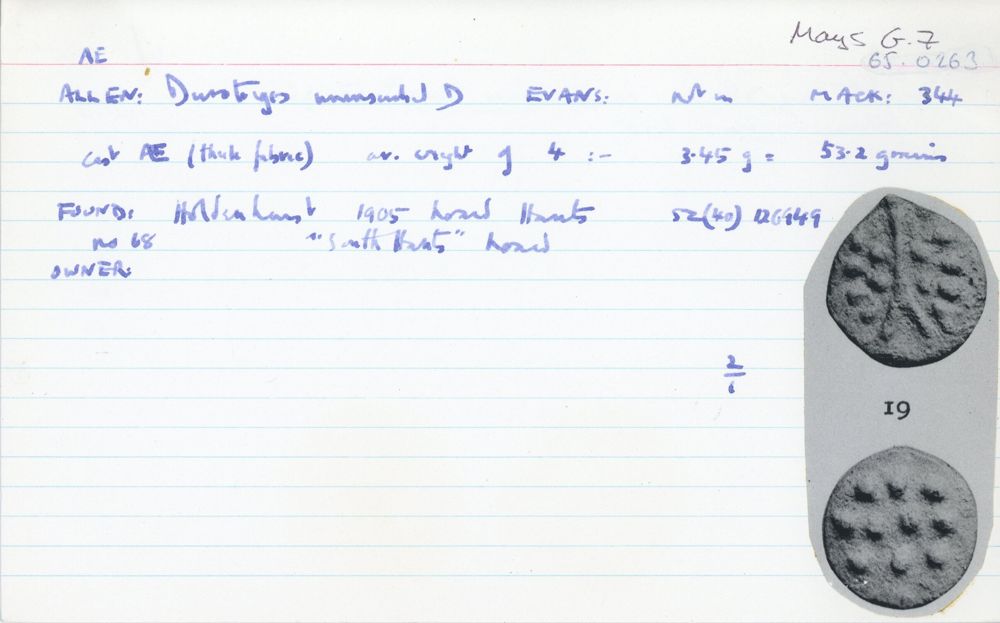 Mays G.7
AE
65.0263
ALLEN: Durotriges uninscribed D EVANS: Not in MACK: 344
cast AE (thick fabric) av. weight of 4 :- 3.45 g = 53.2 grains
FOUND: Holdenhurst 1905 hoard Hants SZ(40) 126949
no 68 "South Hants" hoard
OWNER:
2
1
19